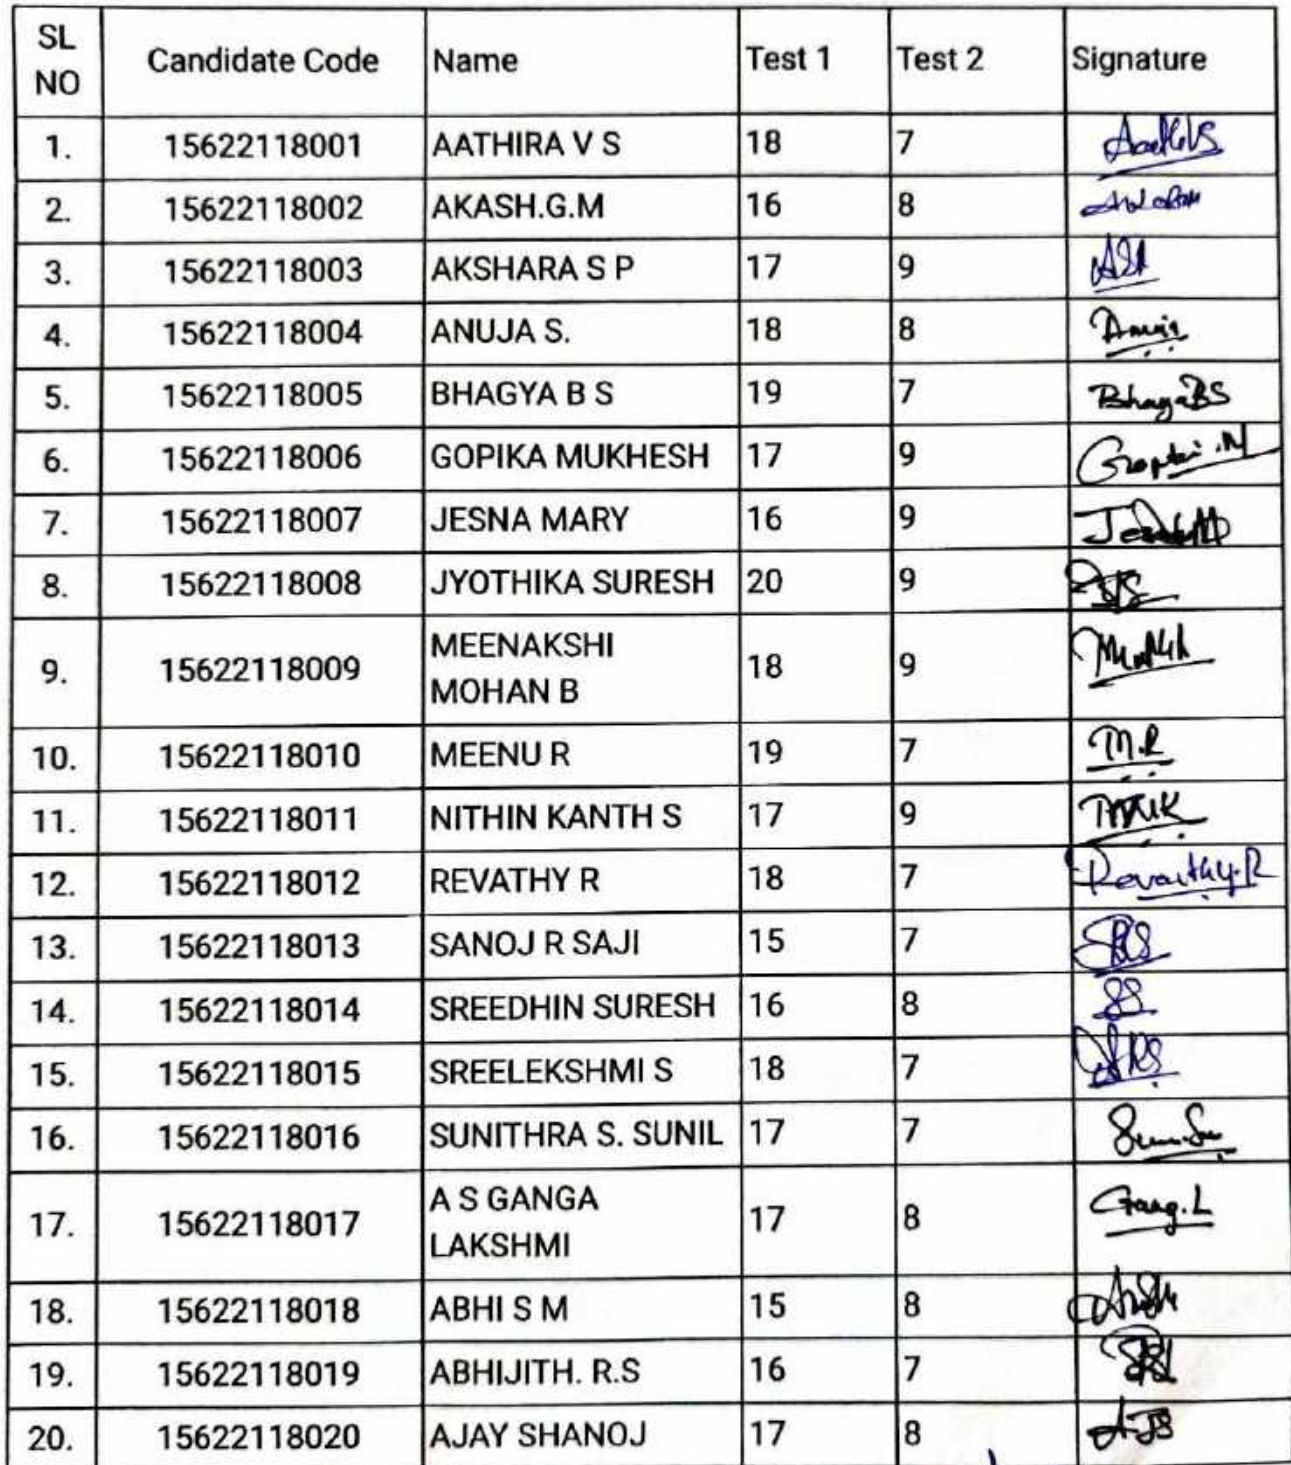 SL NO Candidate Code Name Test 1 Test 2 Signature
1. 15622118001 AATHIRA V S 18 7
2. 15622118002 AKASH.G.M 16 8
3. 15622118003 AKSHARA S P 17 9
4. 15622118004 ANUJA S. 18 8
5. 15622118005 BHAGYA B S 19 7
6. 15622118006 GOPIKA MUKHESH 17 9
7. 15622118007 JESNA MARY 16 9
8. 15622118008 JYOTHIKA SURESH 20 9
9. 15622118009 MEENAKSHI MOHAN B 18 9
10. 15622118010 MEENU R 19 7 M.R
11. 15622118011 NITHIN KANTH S 17 9
12. 15622118012 REVATHY R 18 7 Revathy.R
13. 15622118013 SANOJ R SAJI 15 7
14. 15622118014 SREEDHIN SURESH 16 8 SS
15. 15622118015 SREELEKSHMI S 18 7
16. 15622118016 SUNITHRA S. SUNIL 17 7
17. 15622118017 A S GANGA LAKSHMI 17 8
18. 15622118018 ABHI S M 15 8
19. 15622118019 ABHIJITH. R.S 16 7
20. 15622118020 AJAY SHANOJ 17 8